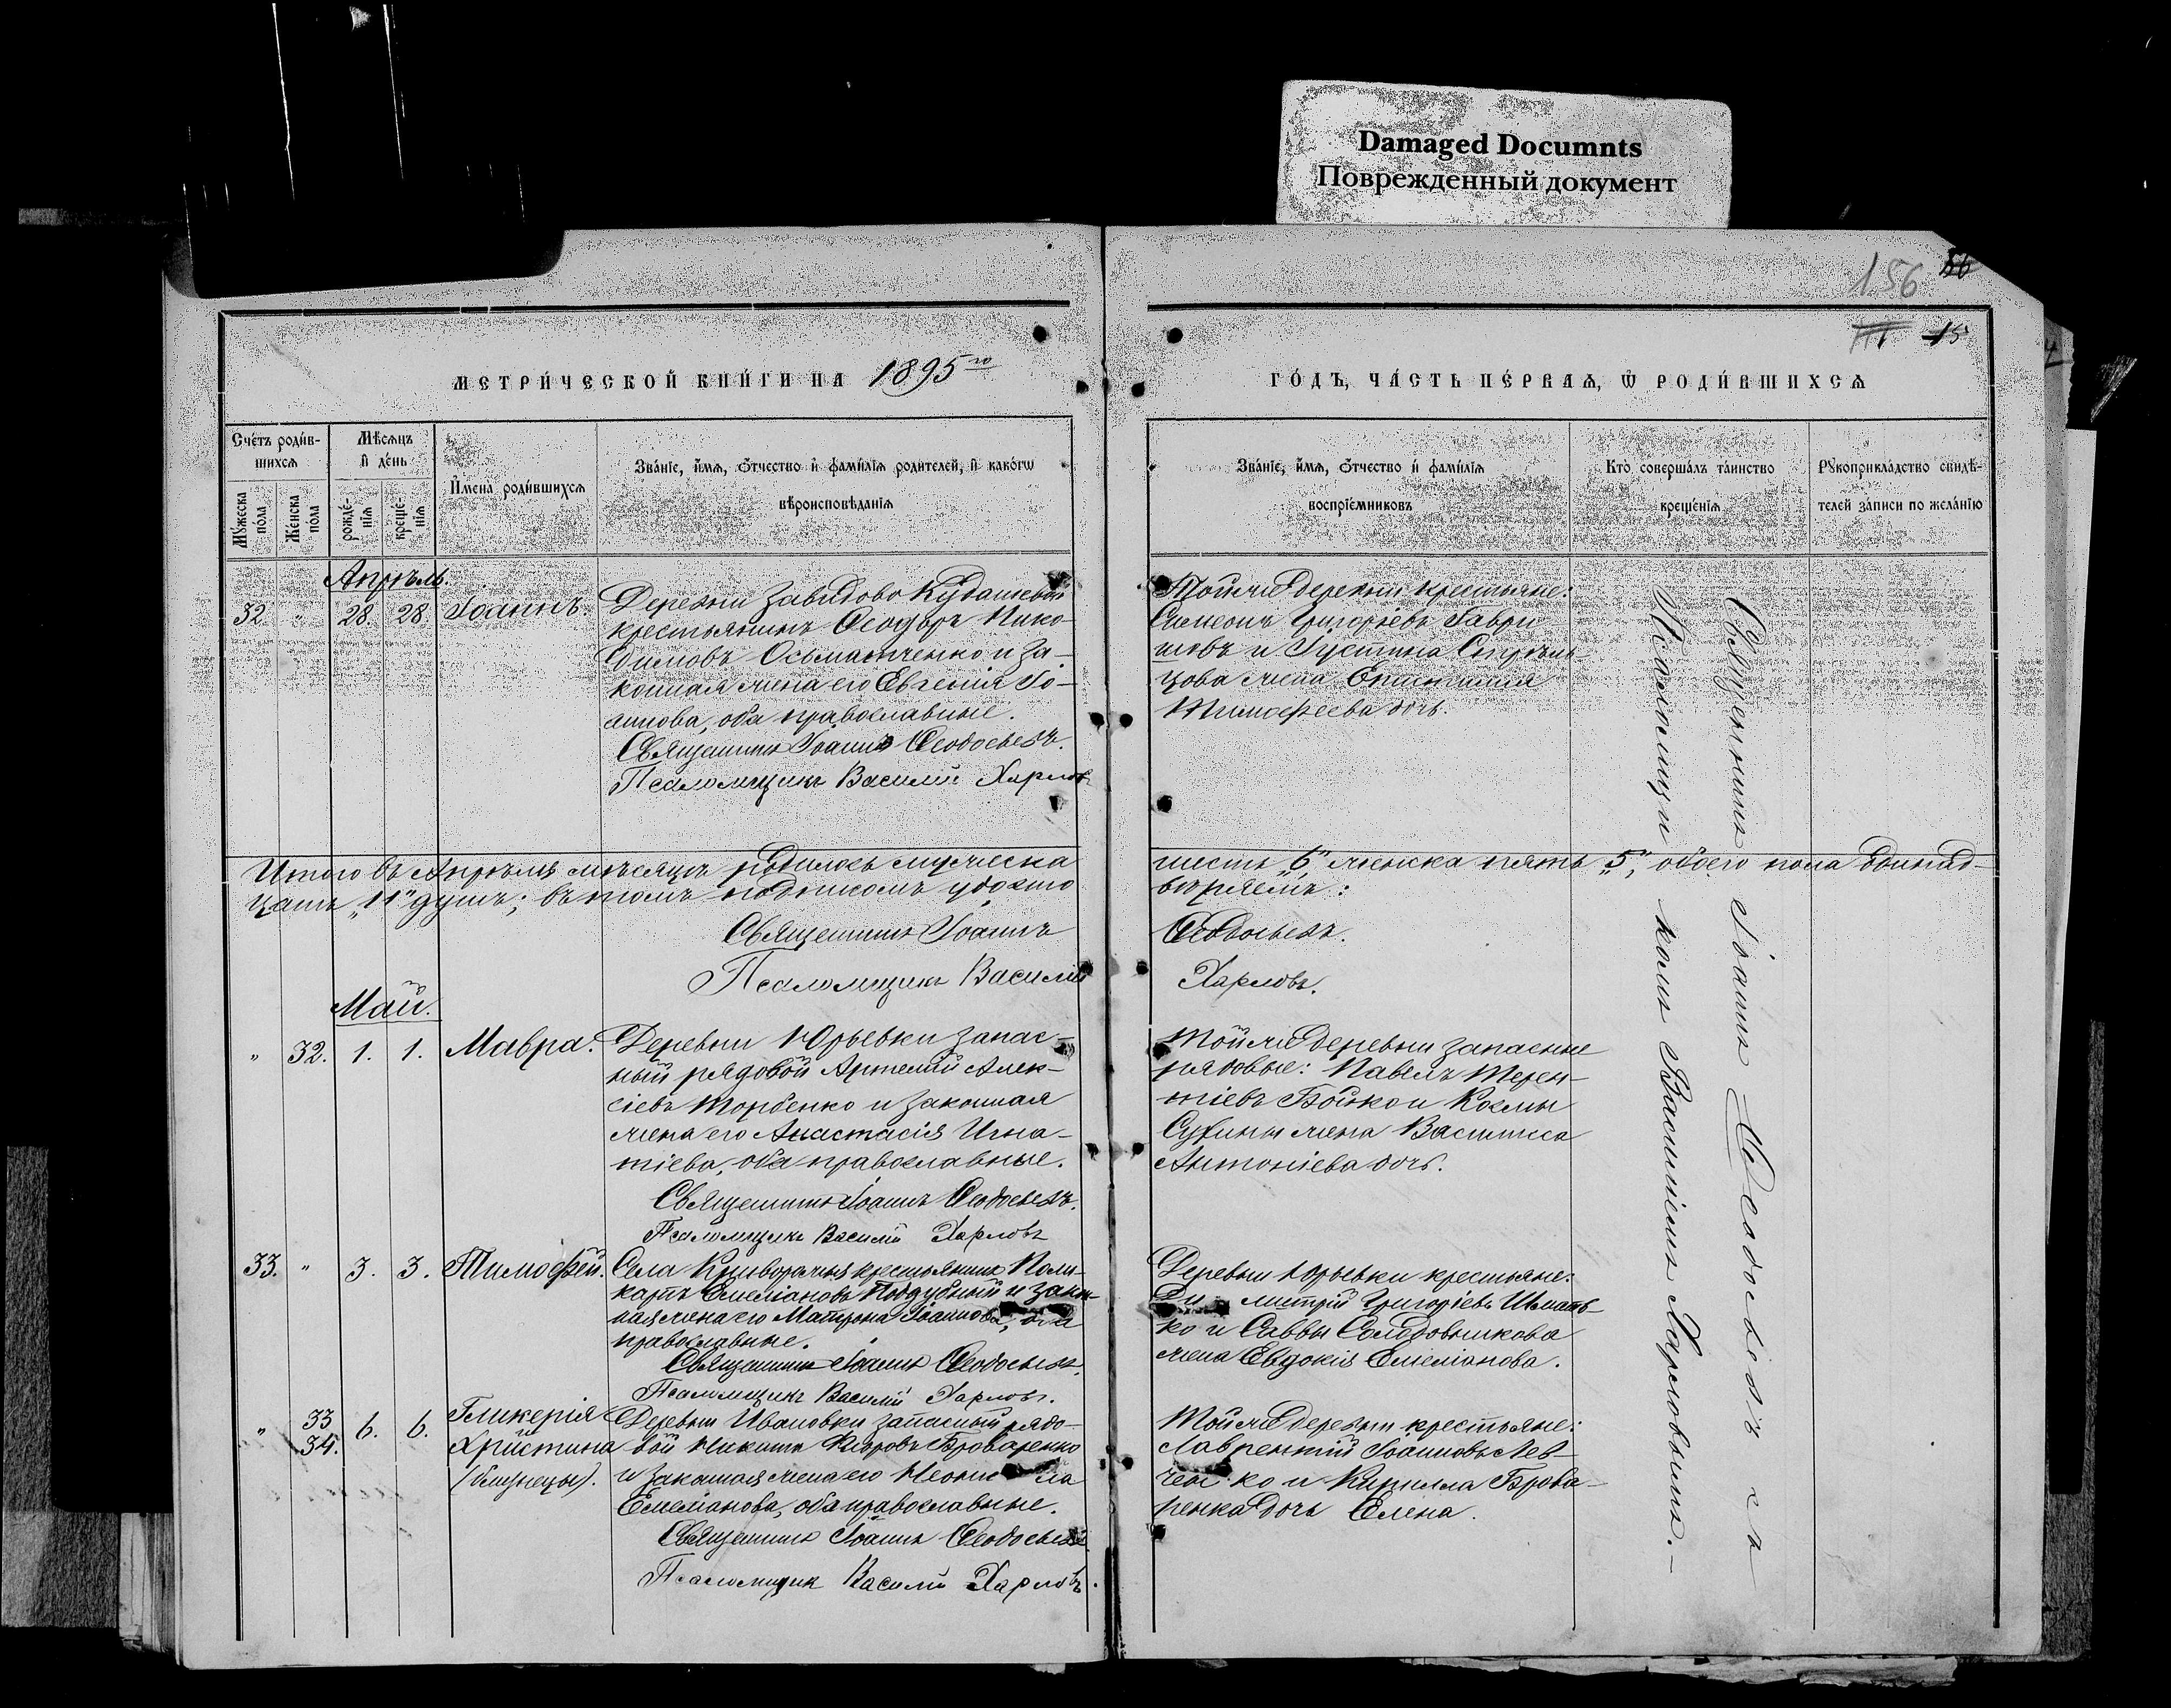 Damaged Documnts
Поврежденный документ
156 56
15
МЕТРИ́ЧЕСКОЙ КНИ́ГИ НА 1895го
ГО́ДЪ, ЧА́СТЬ ПЕ́РВАѦ, Ѡ РОДИ́ВШИХСѦ
Сче́тъ роди́в-
шихсѧ
Мꙋ́жеска
по́ла
Же́нска
по́ла
Мѣ́сѧцъ
и҆ де́нь
рожде́-
нїѧ
креще́-
нїѧ
И҆мена̀ роди́вшихсѧ
Зва́нїе, и҆́мѧ, ѻ҆́тчество и҆ фами́лїѧ роди́телей, и҆ како́гѡ
вѣроисповѣ́данїѧ
Зва́нїе, и҆́мѧ, ѻ҆́тчество и҆ фами́лїѧ
воспрїе́мниковъ
Кто̀ соверша́лъ та́инство
креще́нїѧ
Рꙋкоприкла́дство свидѣ́-
телей за́писи по жела́нїю
Апрѣль.
32. " 28. 28. Іоаннъ.
Деревни Завидово Кудашевой
крестьянинъ Ѳеодоръ Нико-
димовъ Осьмаченко и за-
конная жена его Евгенія Іо-
аннова, оба православные.
Священникъ Іоаннъ Ѳеодосьевъ.
Псаломщикъ Василій Харловъ
Тойже деревни крестьяне:
Симеонъ Григорьевъ Гаври
шовъ и Іустина Стрѣль-
цова жена
Тимоѳеева дочь.
Итого въ Апрѣлѣ мѣсяцѣ родилось мужеска
шесть „6", женска пять „5", обоего пола одинад-
цать „11" душъ; въ томъ подписомъ удосто
вѣряемъ:
Священникъ Іоаннъ
Ѳеодосьевъ.
Псаломщикъ Василій
Харловъ.
Май.
" 32. 1. 1. Мавра.
Деревни Юрьевки запас-
ный рядовой Артемій Алек-
сіевъ Торбенко и законная
жена его Анастасія Игна-
тіева, оба православные.
Священникъ Іоаннъ Ѳеодосьевъ.
Псаломщикъ Василій Харловъ
Тойже деревни запасные
рядовые: Павелъ Терен-
тіевъ Бойко и Космы
Сухины жена Василисса
Антоніева дочь.
33. " 3. 3. Тимоѳей.
Села Криворожья крестьянинъ Поли-
карпъ Емеліановъ Поддубный и закон-
ная жена его Матрона Іоаннова, оба
православные.
Священникъ Іоаннъ Ѳеодосьевъ.
Псаломщикъ Василій Харловъ.
Деревни Юрьевки крестьяне:
Ди- митрій Григорьевъ Шмать-
ко и Саввы Солодовникова
жена Евдокія Емеліанова.
" 33 34. 6. 6. Гликерія
Христина
(близнецы).
Деревни Ивановки запасный рядо-
вой Никита Кировъ Броваренко
и законная жена его Неонила
Емеліанова, оба православные.
Священникъ Іоаннъ Ѳеодосьевъ
Псаломщикъ Василій Харловъ.
Тойже деревни крестьяне:
Лаврентій Іоанновъ Лев-
чен ко и Кирилла Брова-
ренка дочь Елена.
Священникъ Іоаннъ Ѳеодосьевъ съ
Псаломщи комъ Василіемъ Харловымъ.